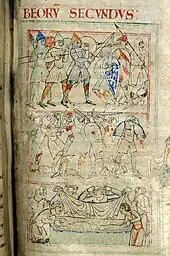 BEORV SECVNDVS